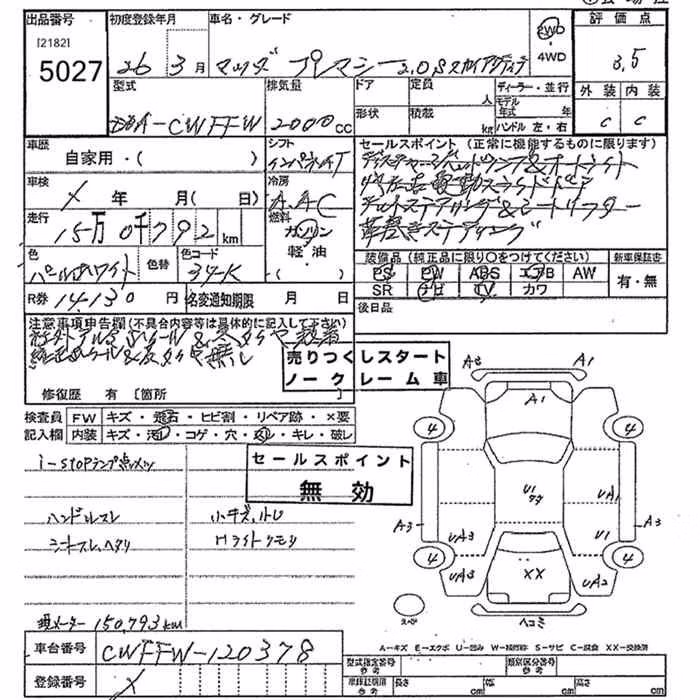 出品番号
[2182]
5027
初度登録年月
26 3月
車名・グレード
マツダ プレマシー 2.0Sスカイアクティブ
2WD
4WD
評価点
3.5
外装 内装
C C
型式
DBA-CWFFW
排気量
2000cc
ドア
形状
定員
人
積載
kg
ディーラー・並行
モデル年式 年
ハンドル 左・右
車歴
自家用・( )
シフト
インパネAT
セールスポイント(正常に機能するものに限ります)
ディスチャージヘッドランプ&オートライト
両側電動スライドドア
チルトステアリング&シートリフター
革巻きステアリング
車検
X 年 月( 日)
冷房
AAC
走行
15万0千792km
燃料
ガソリン
軽油
・( )
色
パールホワイト
色替
色コード
34K
装備品(純正品に限り○をつけてください)
新車保証書
PS PW ABS エアB AW
SR ナビ TV カワ
有・無
R券 14,130円
名変通知期限 月 日
後日品
注意事項申告欄(不具合内容等は具体的に記入して下さい)
売りつくしスタート
ノークレーム車
修復歴 有 [箇所
検査員
記入欄
FW キズ・飛石・ヒビ割・リペア跡・×要
内装 キズ・汚レ・コゲ・穴・スレ・キレ・破レ
i-stopランプ点メツ
セールスポイント
無効
ハンドルスレ
小キズ、小U
シートスレ、ヘタリ
Hライトクモリ
現メーター 150,793km
A2 A1
A1
4 4
U1
UA1
A3 UA3 U1 A3
4 4
UA3 XX UA2
スペア
ヘコミ
A-キズ E-エクボ U-凹み W-補修跡 S-サビ C-腐食 XX-交換済
車台番号
CWFFW-120378
登録番号
X
型式指定番号
参考
類別区分番号
参考
車検証記載
参考
長さ cm 幅 cm 高さ cm